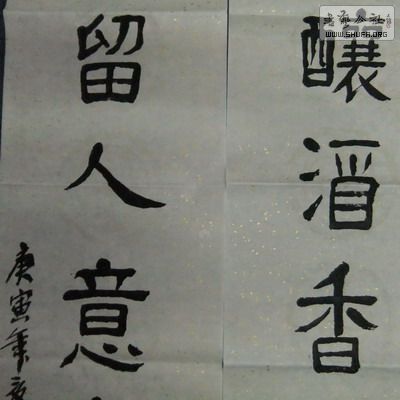 釀酒香
留人意
庚寅年
WWW.SHUFA.ORG